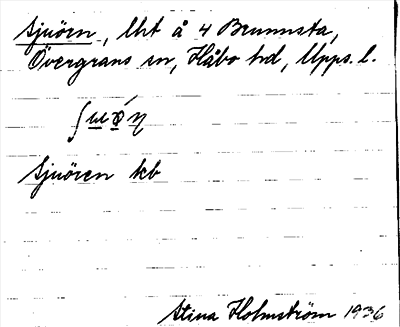 Sjuören, lht å 4 Brunnsta,
Övergrans sn, Håbo hd, Upps. l.
Sjuören kb
Stina Holmström 1936